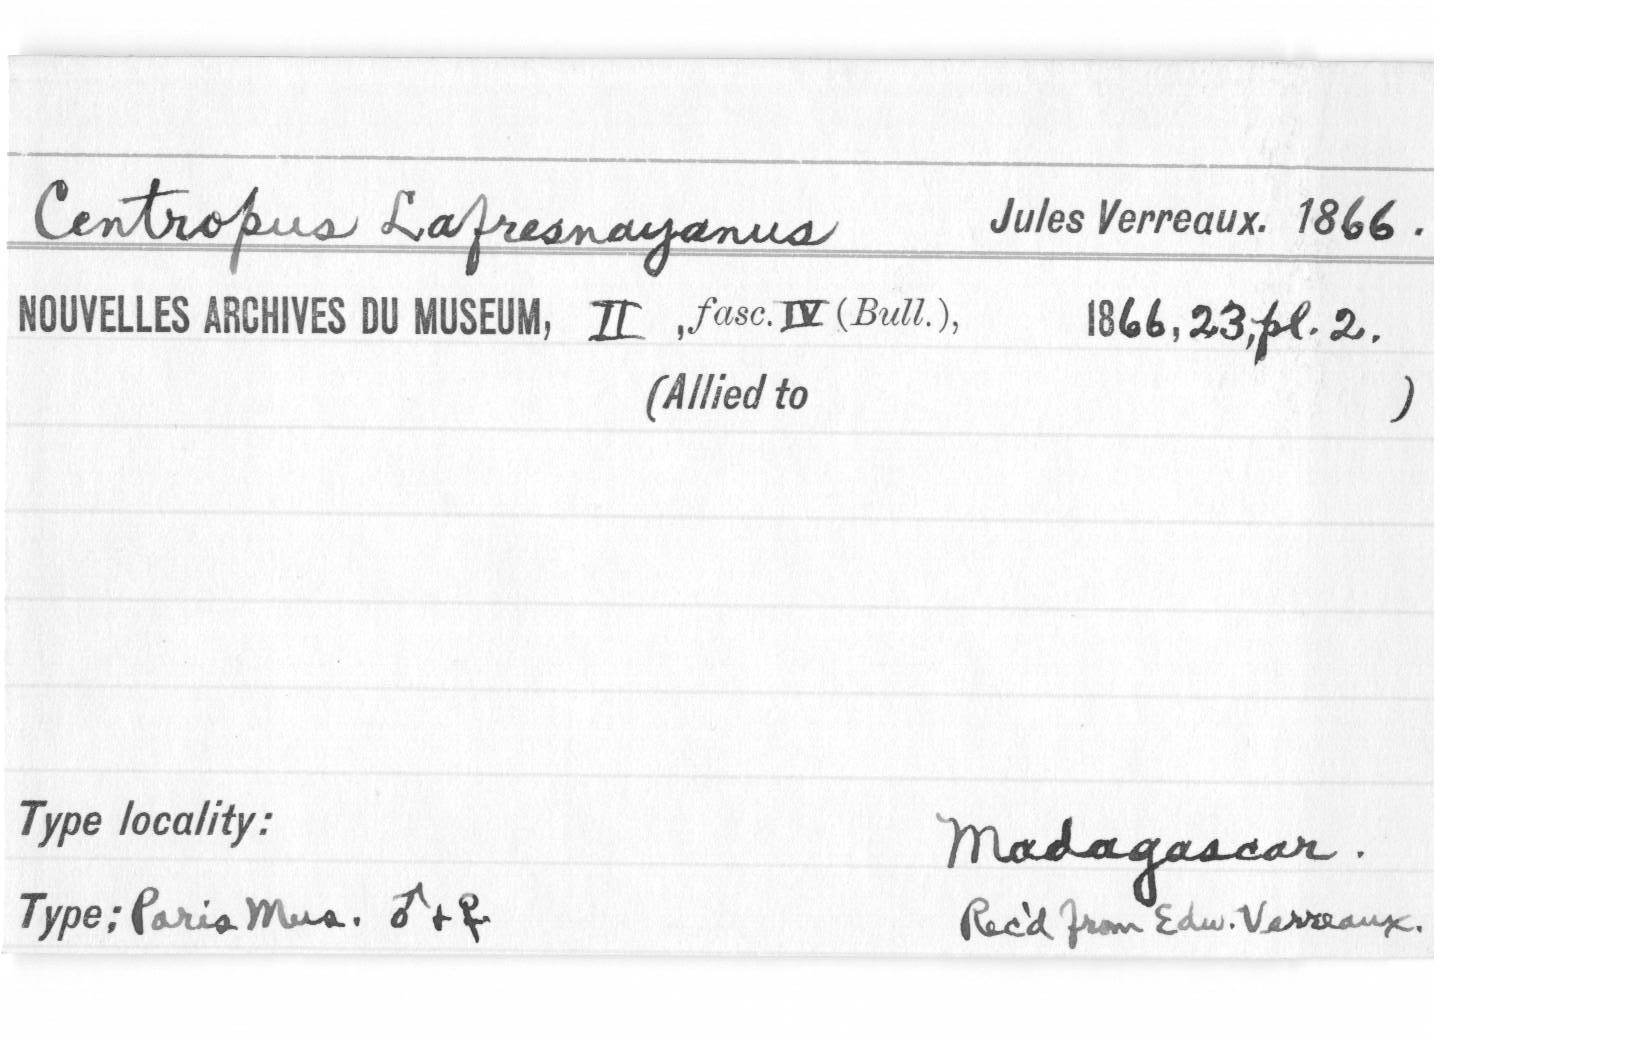 Centropus Lafresnayanus Jules Verreaux. 1866.
NOUVELLES ARCHIVES DU MUSEUM, II, fasc. IV (Bull.), 1866, 23, pl. 2.
(Allied to )
Type locality: Madagascar.
Type; Paris Mus. ♂ + ♀. Rec'd from Edw. Verreaux.